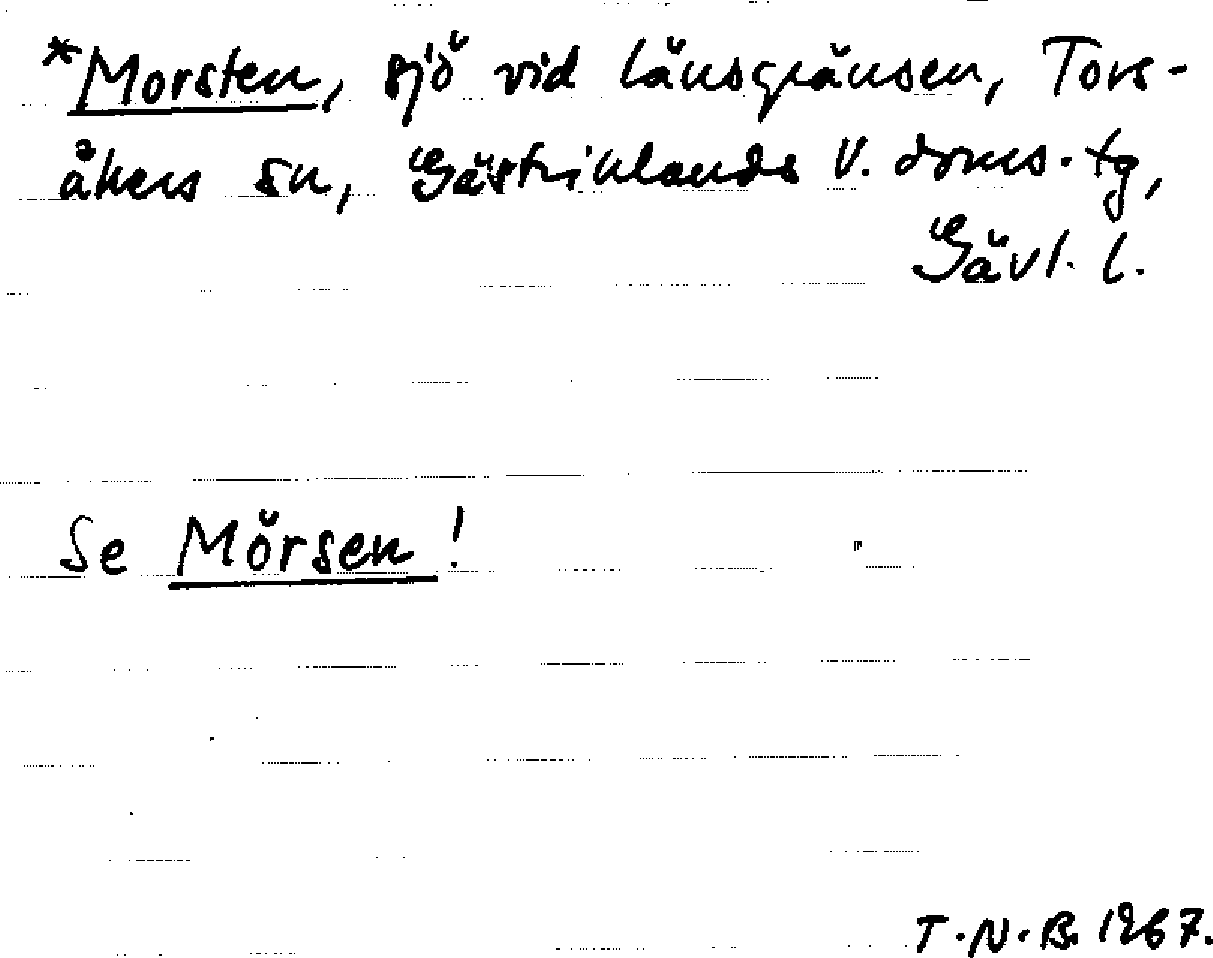 *Morsten, sjö vid länsgränsen, Tors-
åkers sn, Gästriklands V. doms. tg,
Gävl. l.
Se Mörsen!
T.N.B. 1967.